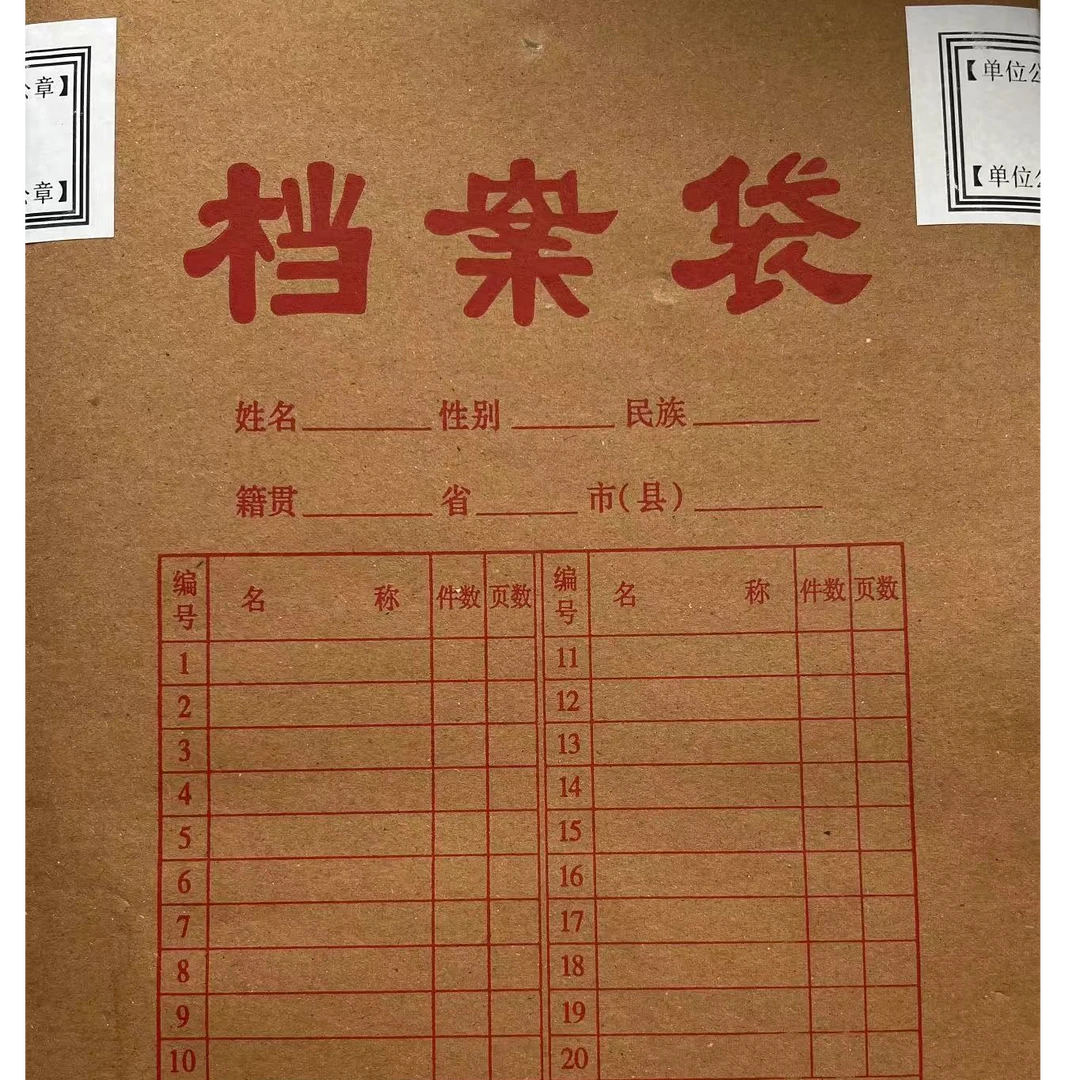 章】
【单位
章】
【单位
档案袋
姓名 性别 民族
籍贯 省 市(县)
编号 名称 件数 页数 编号 名称 件数 页数
1 11
2 12
3 13
4 14
5 15
6 16
7 17
8 18
9 19
10 20